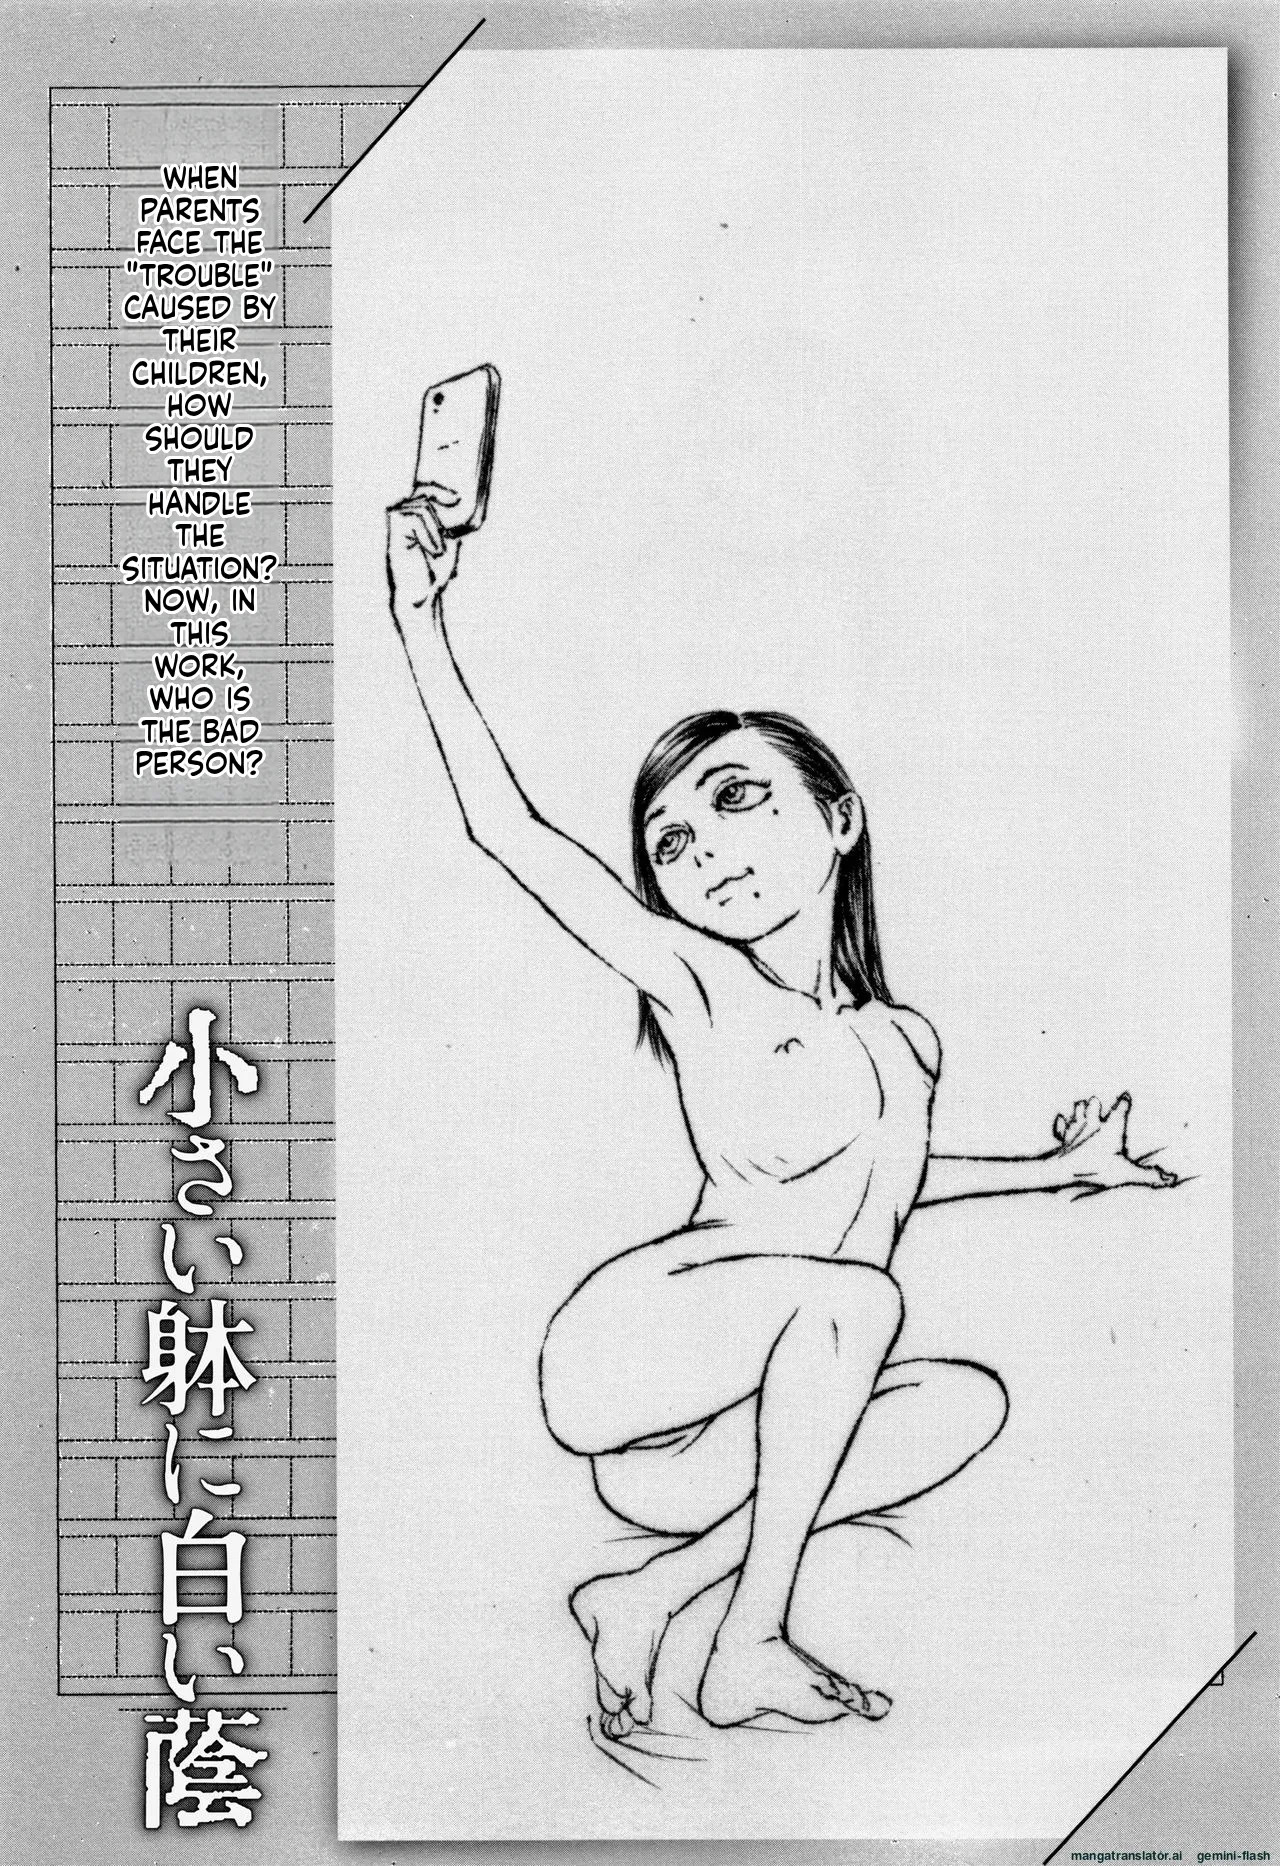 WHEN
PARENTS
FACE THE
"TROUBLE"
CAUSED BY
THEIR
CHILDREN,
HOW
SHOULD
THEY
HANDLE
THE
SITUATION?
NOW, IN
THIS
WORK,
WHO IS
THE BAD
PERSON?
小さい躰に白い蔭
mangatranslator.ai gemini-flash